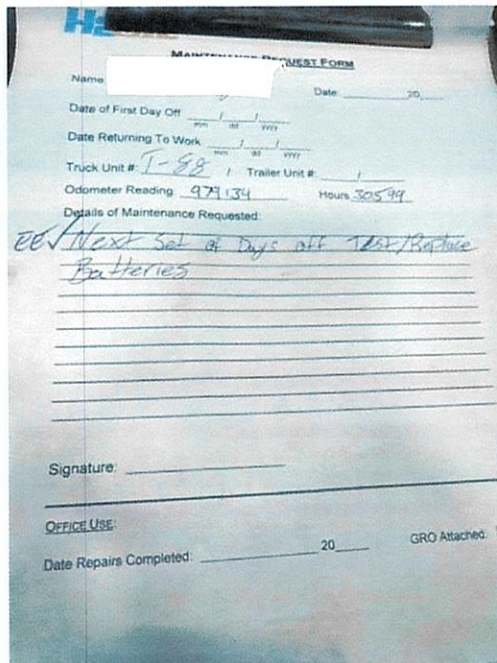 MAINTENANCE REQUEST FORM
Name: Date: 20
Date of First Day Off / /
mm dd yyyy
Date Returning To Work / /
mm dd yyyy
Truck Unit #: T-88 / Trailer Unit #: /
Odometer Reading: 979134 Hours 30599
Details of Maintenance Requested:
EE✓ Next Set of Days off Test/Replace
Batteries
Signature:
OFFICE USE:
Date Repairs Completed: 20 GRO Attached: